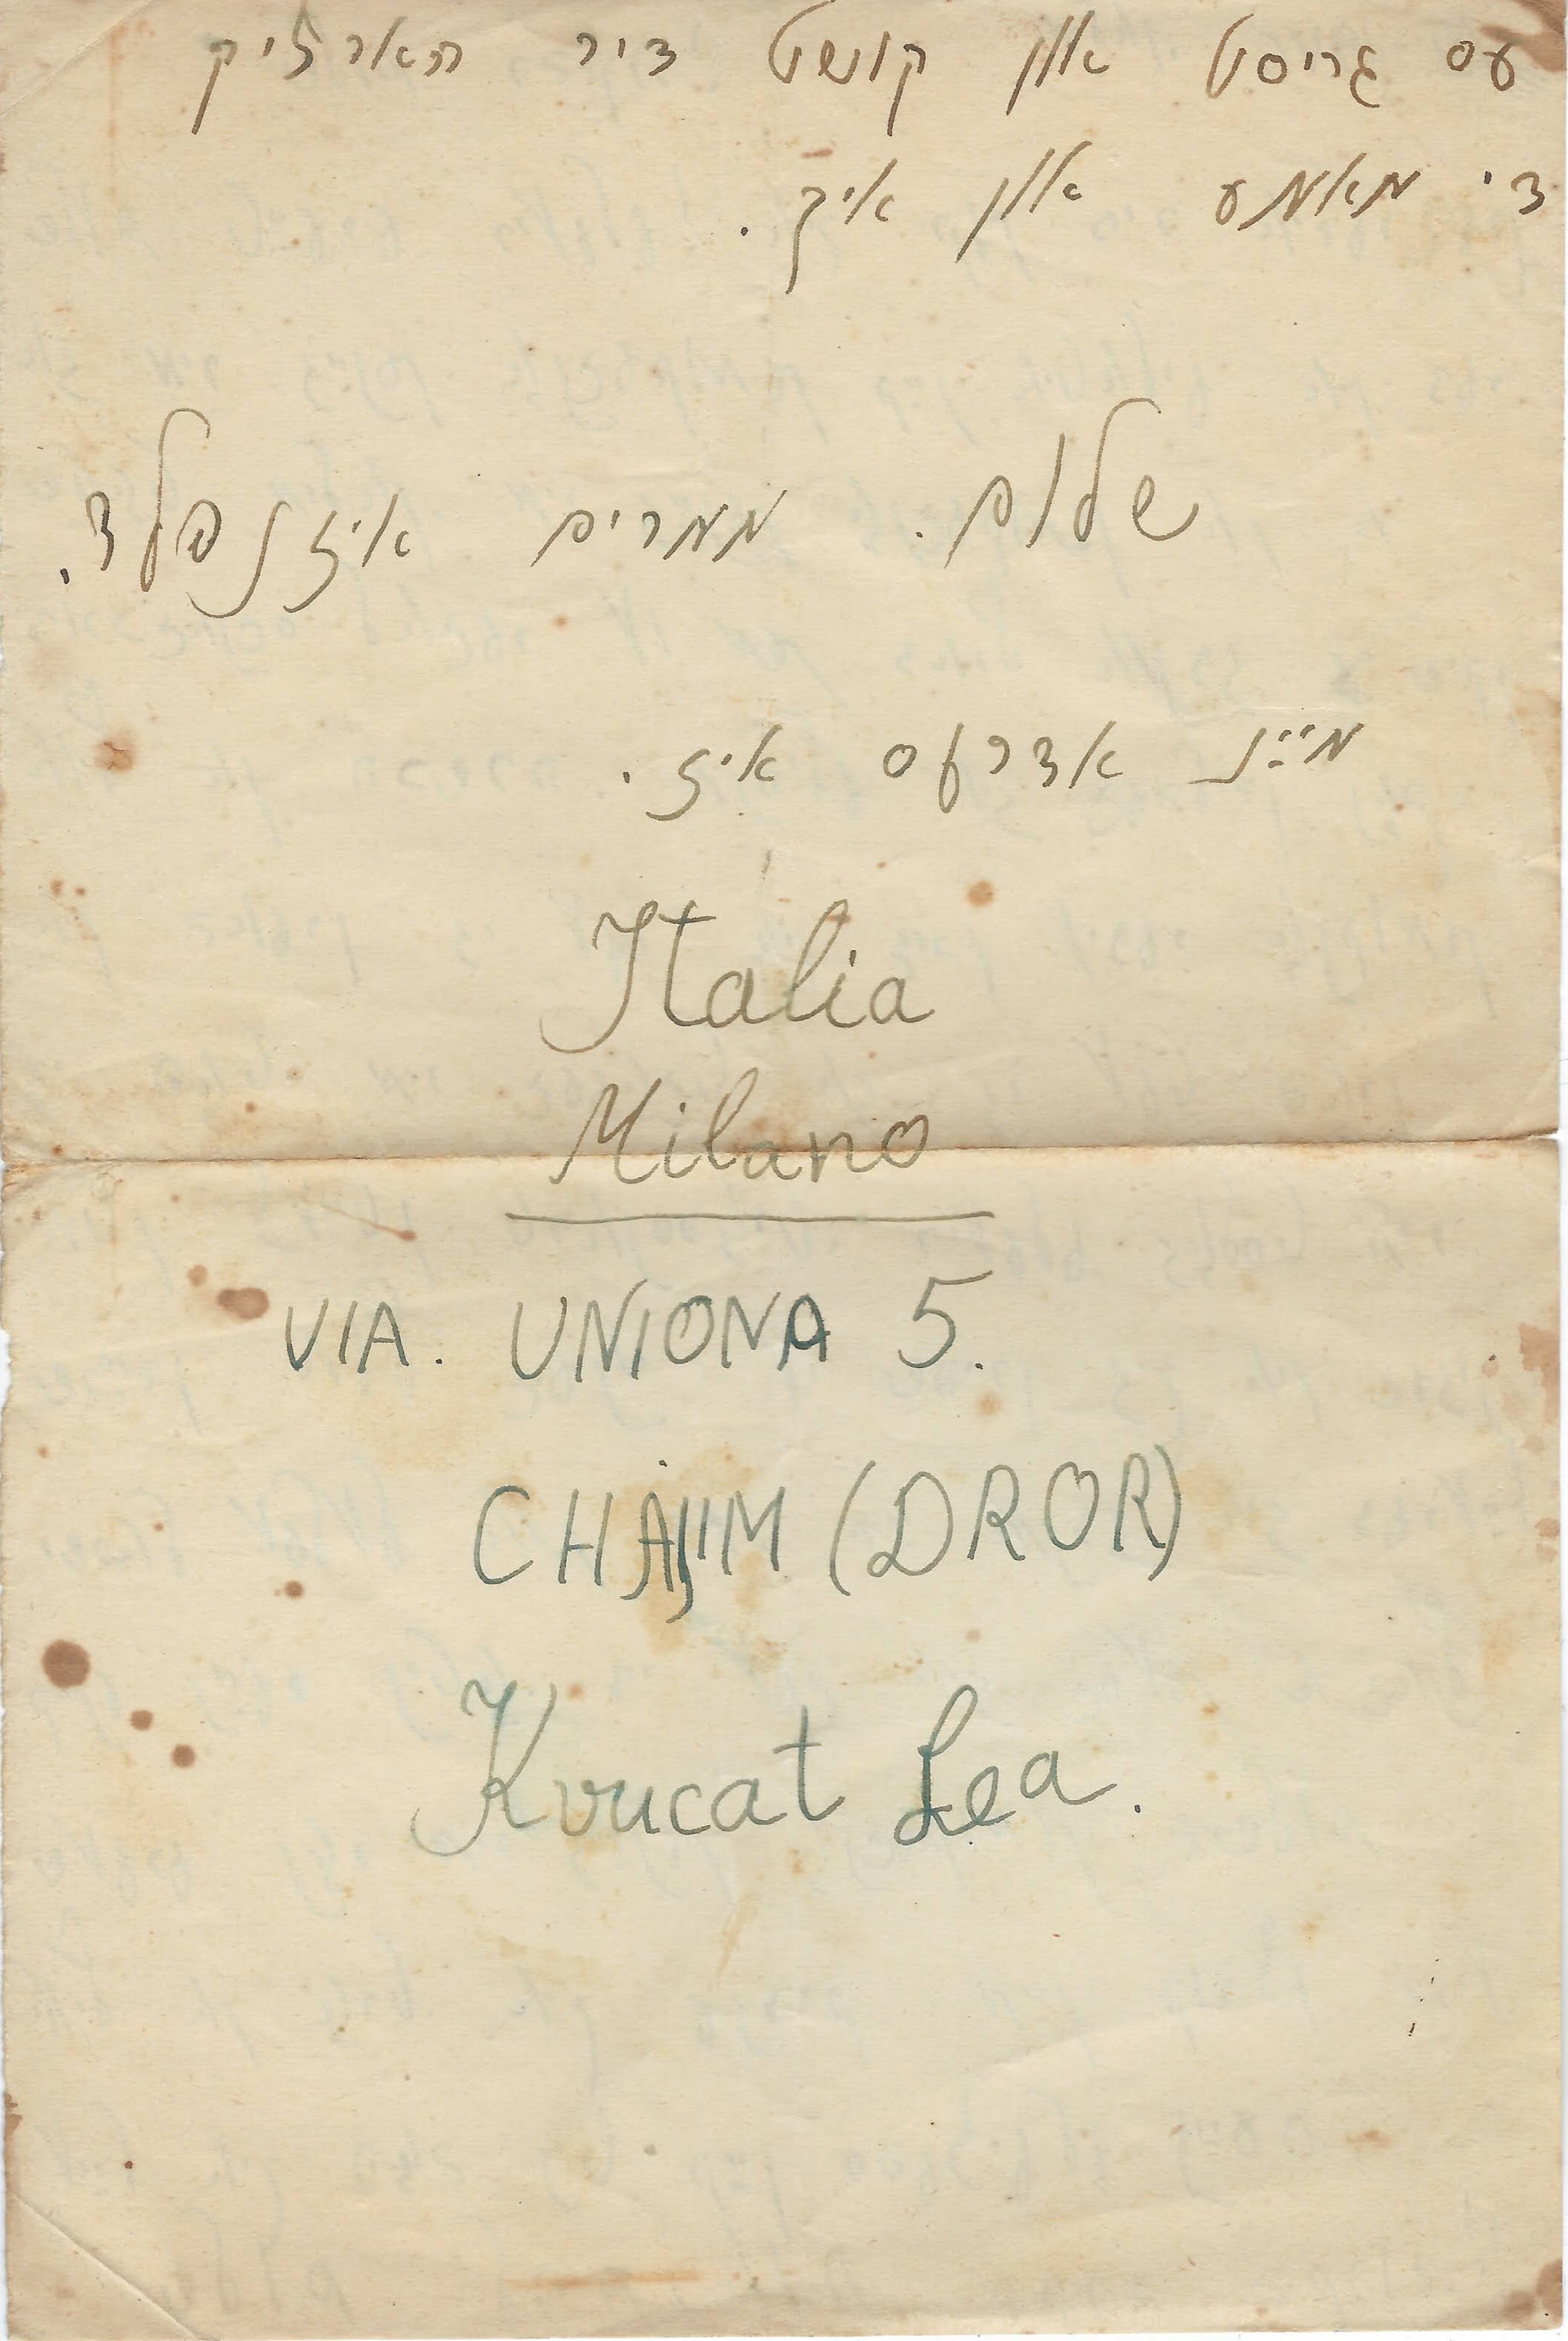 עס גריסט און קושט דיר הארציק
די מאמע און איך.
שלום. ממרים איזנפלד.
מיינ אדרעס איז.
Italia
Milano
VIA. UNIONA 5.
CHAJIM (DROR)
Kvucat Lea.